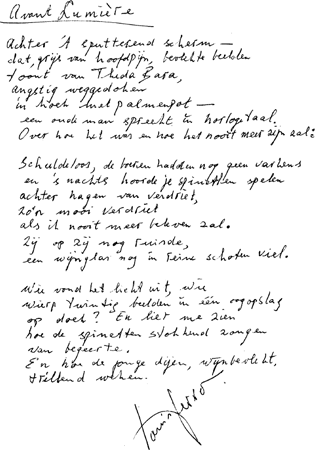 Avant Lumière
Achter 't sputterend scherm —
dat, grijs van hoofdpijn, bevlekte beelden
toont van Theda Bara,
angstig weggedoken
in hoek met palmenpot —
een oude man spreekt in horlogetaal.
Over hoe het was en hoe het nooit meer zijn zal:
Schuldeloos, de boeren hadden nog geen varkens
en 's nachts hoorde je spinetten spelen
achter hagen van verdriet,
zo'n mooi verdriet
als il nooit meer beleven zal.
Zij op zij nog ruisde,
een wijnglas nog in reine schoten viel.
Wie vond het licht uit, wie
wierp twintig beelden in één oogopslag
op doek? En liet me zien
hoe de spinetten stokkend zongen
van begeerte.
En hoe de jonge dijen, wijnbevlekt,
trillend weken.